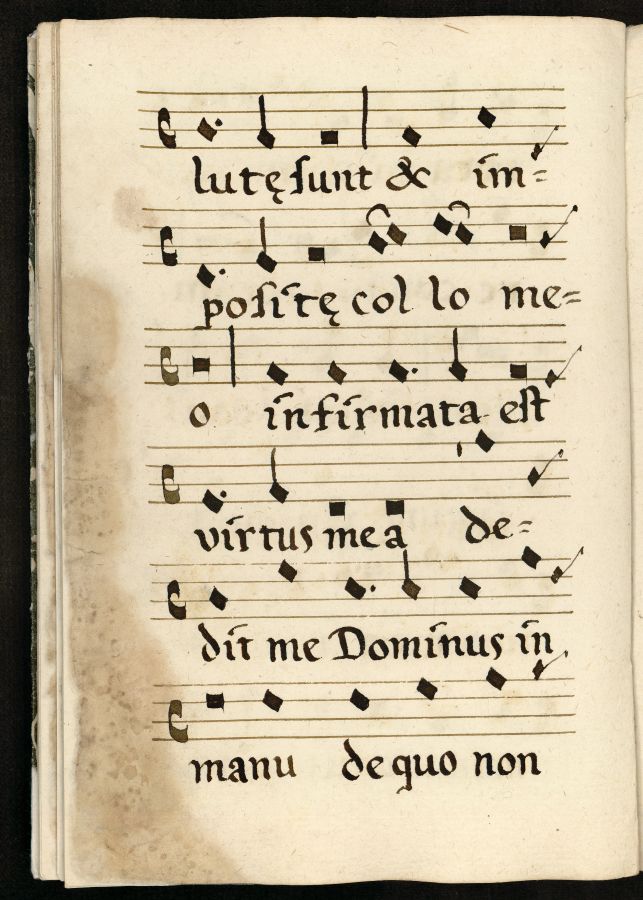 lutę sunt & im=
positę collo me=
o infirmata est
virtus mea de=
dit me Dominus in
manu de quo non